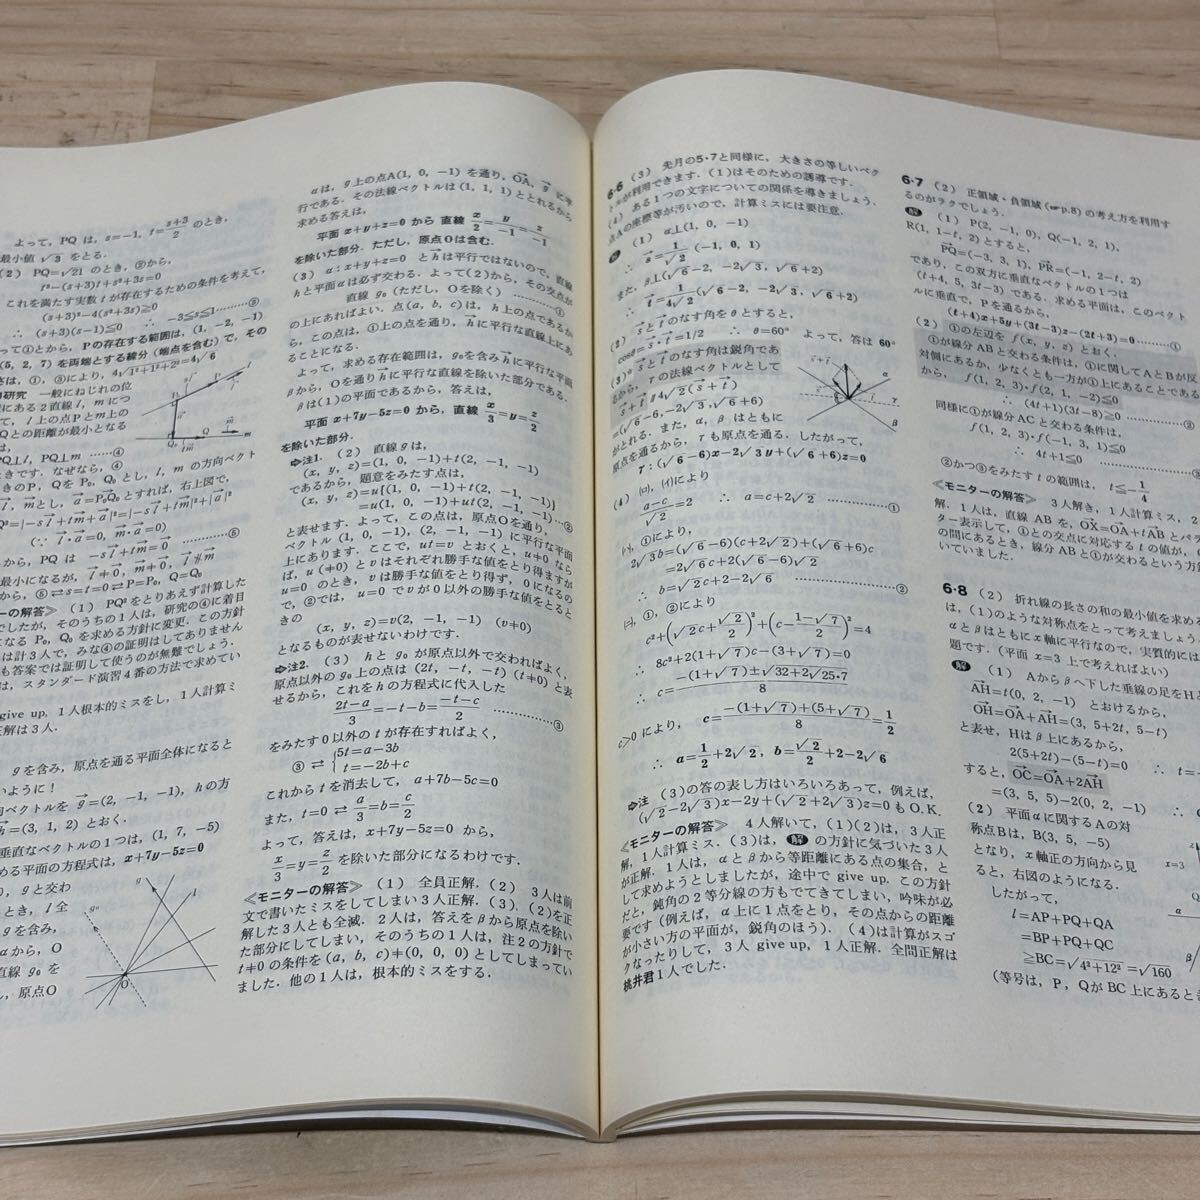 よって，PQ は，s=−1，t=(s+3)/2 のとき，
最小値 √3 をとる．
(2) PQ=√21 のとき，②から，
t²−(s+3)t+s²+3s=0
これを満たす実数 t が存在するための条件を考えて，
(s+3)²−4(s²+3s)≧0 ……③
∴ (s+3)(s−1)≦0 ∴ −3≦s≦1
って①とから，Pの存在する範囲は，(1, −2, −1)
(5, 2, 7) を両端とする線分 (端点を含む) で，その
さは，①，③により，4√1²+1²+2²=4√6
研究 一般にねじれの位
にある2直線 l, m につ
て，l 上の点Pとm上の
Qとの距離が最小となる
PQ⊥l, PQ⊥m ……④
きです．なぜなら，④
きのP，Qを P₀, Q₀ とし，l, m の方向ベクト
l, m とし，a=P₀Q₀ とすれば，右上図で，
Q²=|−sl+tm+a|²=|−sl+tm|²+|a|²
(∵ l・a=0, m・a=0)
から，PQ は −sl+tm=0 ……⑤
最小になるが，l≠0, m≠0, l∦m
から，⑤⇄s=t=0⇄P=P₀, Q=Q₀
ターの解答≫ (1) PQ²をとりあえず計算した
でしたが，そのうちの1人は，研究の④に着目
になる P₀, Q₀ を求める方針に変更．この方針
は計3人で，みな④の証明はしてありません
も答案では証明して使うのが無難でしょう．
は，スタンダード演習4番の方法で求めてい
give up，1人根本的ミスをし，1人計算ミ
正解は3人．
g を含み，原点を通る平面全体になると
いように！
向ベクトルを g=(2, −1, −1)，h の方
h=(3, 1, 2) とおく．
垂直なベクトルの1つは，(1, 7, −5)
める平面の方程式は，x+7y−5z=0
0，g と交わ
とき，l 全
g を含み，
αから，O
直線 g₀ を
し，原点O
g₀
g
l
O
αは，g上の点A(1, 0, −1) を通り，OA，g に平
行である．その法線ベクトルは (1, 1, 1) ととれるから
求める答えは，
平面 x+y+z=0 から 直線 x/2=y/−1=z/−1
を除いた部分．ただし，原点Oは含む．
(3) α：x+y+z=0 とhは平行ではないので，直線
hと平面αは必ず交わる．よって(2)から，その交点が
直線 g₀ (ただし，Oを除く) ……①
の上にあればよい．点(a, b, c) は，h上の点であるか
ら，この点は，①上の点を通り，hに平行な直線上にあ
ることになる．
よって，求める存在範囲は，g₀を含みhに平行な平面
βから，Oを通りhに平行な直線を除いた部分である．
βは(1)の平面であるから，答えは，
平面 x+7y−5z=0 から，直線 x/3=y=z/2
を除いた部分．
⇨注1. (2) 直線gは，
(x, y, z)=(1, 0, −1)+t(2, −1, −1)
であるから，題意をみたす点は，
(x, y, z)=u[(1, 0, −1)+t(2, −1, −1)]
=u(1, 0, −1)+ut(2, −1, −1) …②
と表せます．よって，この点は，原点Oを通り，
ベクトル (1, 0, −1)，(2, −1, −1) に平行な平面
上にあります．ここで，ut=v とおくと，u≠0 なら
ば，u (≠0) とvはそれぞれ勝手な値をとり得ますが
u=0 のとき，vは勝手な値をとり得ず，0になるの
で，②では，u=0 でvが0以外の勝手な値をとると
きの
(x, y, z)=v(2, −1, −1) (v≠0)
となるものが表せないわけです．
⇨注2. (3) hとg₀が原点以外で交わればよく，
原点以外のg₀上の点は (2t, −t, −t) (t≠0) と表
せるから，これをhの方程式に代入した
(2t−a)/3=−t−b=(−t−c)/2 ……③
をみたす0以外のtが存在すればよく，
③⇄{5t=a−3b
t=−2b+c
これから t を消去して，a+7b−5c=0
また，t=0⇄a/3=b=c/2
よって，答えは，x+7y−5z=0 から，
x/3=y=z/2 を除いた部分になるわけです．
≪モニターの解答≫ (1) 全員正解．(2) 3人は前
文で書いたミスをしてしまい3人正解．(3)．(2)を正
解した3人とも全滅．2人は，答えをβから原点を除い
た部分にしてしまい，そのうちの1人は，注2の方針で
t≠0 の条件を (a, b, c)≠(0, 0, 0) としてしまってい
ました．他の1人は，根本的ミスをする．
6・6 (3) 先月の5・7と同様に，大きさの等しいベク
トルが利用できます．(1)はそのための誘導です．
(4) ある1つの文字についての関係を導きましょう．
点Aの座標等が汚いので，計算ミスには要注意．
解 (1) α⊥(1, 0, −1)
∴ s=1/√2(−1, 0, 1)
また，β⊥(√6−2, −2√3, √6+2)
∴ t=1/4√2(√6−2, −2√3, √6+2)
(2) sとtのなす角をθとすると，
cosθ=s・t=1/2 ∴ θ=60° よって，答は 60°
(3) sとtのなす角は鋭角であ
るから，γの法線ベクトルとして
s+t∥4√2(s+t)
=(√6−6, −2√3, √6+6)
がとれる．また，α，βはともに
原点を通るから，γも原点を通る．したがって，
γ：(√6−6)x−2√3y+(√6+6)z=0
(4) (ロ)，(イ)により
(a−c)/√2=2 ∴ a=c+2√2 ……①
(ハ)，①により，
2√3b=(√6−6)(c+2√2)+(√6+6)c
=2√6c+(√6−6)√2
∴ b=√2c+2−2√6 ……②
(ニ)，①，②により
8c²+2(1+√7)c−(3+√7)=0
∴ c=(−(1+√7)±√32+2√25・7)/8
c>0 により， c=(−(1+√7)+(5+√7))/8=1/2
∴ a=1/2+2√2，b=√2/2+2−2√6
⇨注 (3)の答の表し方はいろいろあって，例えば，
(√2−2√3)x−2y+(√2+2√3)z=0 も O.K.
≪モニターの解答≫ 4人解いて，(1)(2)は，3人正
解，1人計算ミス．(3)は，解の方針に気づいた3人
が正解．1人は，αとβから等距離にある点の集合，と
して求めようとしましたが，途中で give up．この方針
だと，鈍角の2等分線の方もでてきてしまい，吟味が必
要です (例えば，α上に1点をとり，その点からの距離
が小さい方の平面が，鋭角のほう)．(4)は計算がスゴ
クなったりして，3人 give up，1人正解．全問正解は
桃井君1人でした．
6・7 (2) 正領域・負領域 (☞p.8) の考え方を利用す
るのがラクでしょう．
解 (1) P(2, −1, 0)，Q(−1, 2, 1)，
R(1, 1−t, 2) とすると，
PQ=(−3, 3, 1)，PR=(−1, 2−t, 2)
であり，この双方に垂直なベクトルの1つは
(t+4, 5, 3t−3) である．求める平面は，このベクト
ルに垂直で，Pを通るから，
(t+4)x+5y+(3t−3)z−(2t+3)=0 ……①
(2) ①の左辺を f(x, y, z) とおく．
①が線分ABと交わる条件は，①に関してAとBが反
対側にあるか，少なくとも一方が①上にあることである
から， f(1, 2, 3)・f(2, 1, −2)≦0
∴ (4t+1)(3t−8)≧0 ……②
同様に①が線分ACと交わる条件は，
f(1, 2, 3)・f(−1, 3, 1)≦0
∴ 4t+1≦0 ……③
②かつ③をみたす t の範囲は， t≦−1/4
≪モニターの解答≫ 3人解き，1人計算ミス，2
解．1人は，直線ABを，OX=OA+tAB とパラ
ター表示して，①との交点に対応するtの値が，
の間にあるとき，線分ABと①が交わるという方針
いていました．
6・8 (2) 折れ線の長さの和の最小値を求める
は，(1)のような対称点をとって考えましょう
αとβはともにx軸に平行なので，実質的には
題です．(平面 x=3 上で考えればよい)
解 (1) Aからβへ下した垂線の足をH
AH=t(0, 2, −1) とおけるから，
OH=OA+AH=(3, 5+2t, 5−t)
と表せ，Hはβ上にあるから，
2(5+2t)−(5−t)=0 ∴ t=−
すると，OC=OA+2AH
=(3, 5, 5)−2(0, 2, −1)
(2) 平面αに関するAの対
称点Bは，B(3, 5, −5)
となり，x軸正の方向から見
ると，右図のようになる．
したがって，
l=AP+PQ+QA
=BP+PQ+QC
≧BC=√4²+12²=√160
(等号は，P，QがBC上にあるとき
x=3
α
β